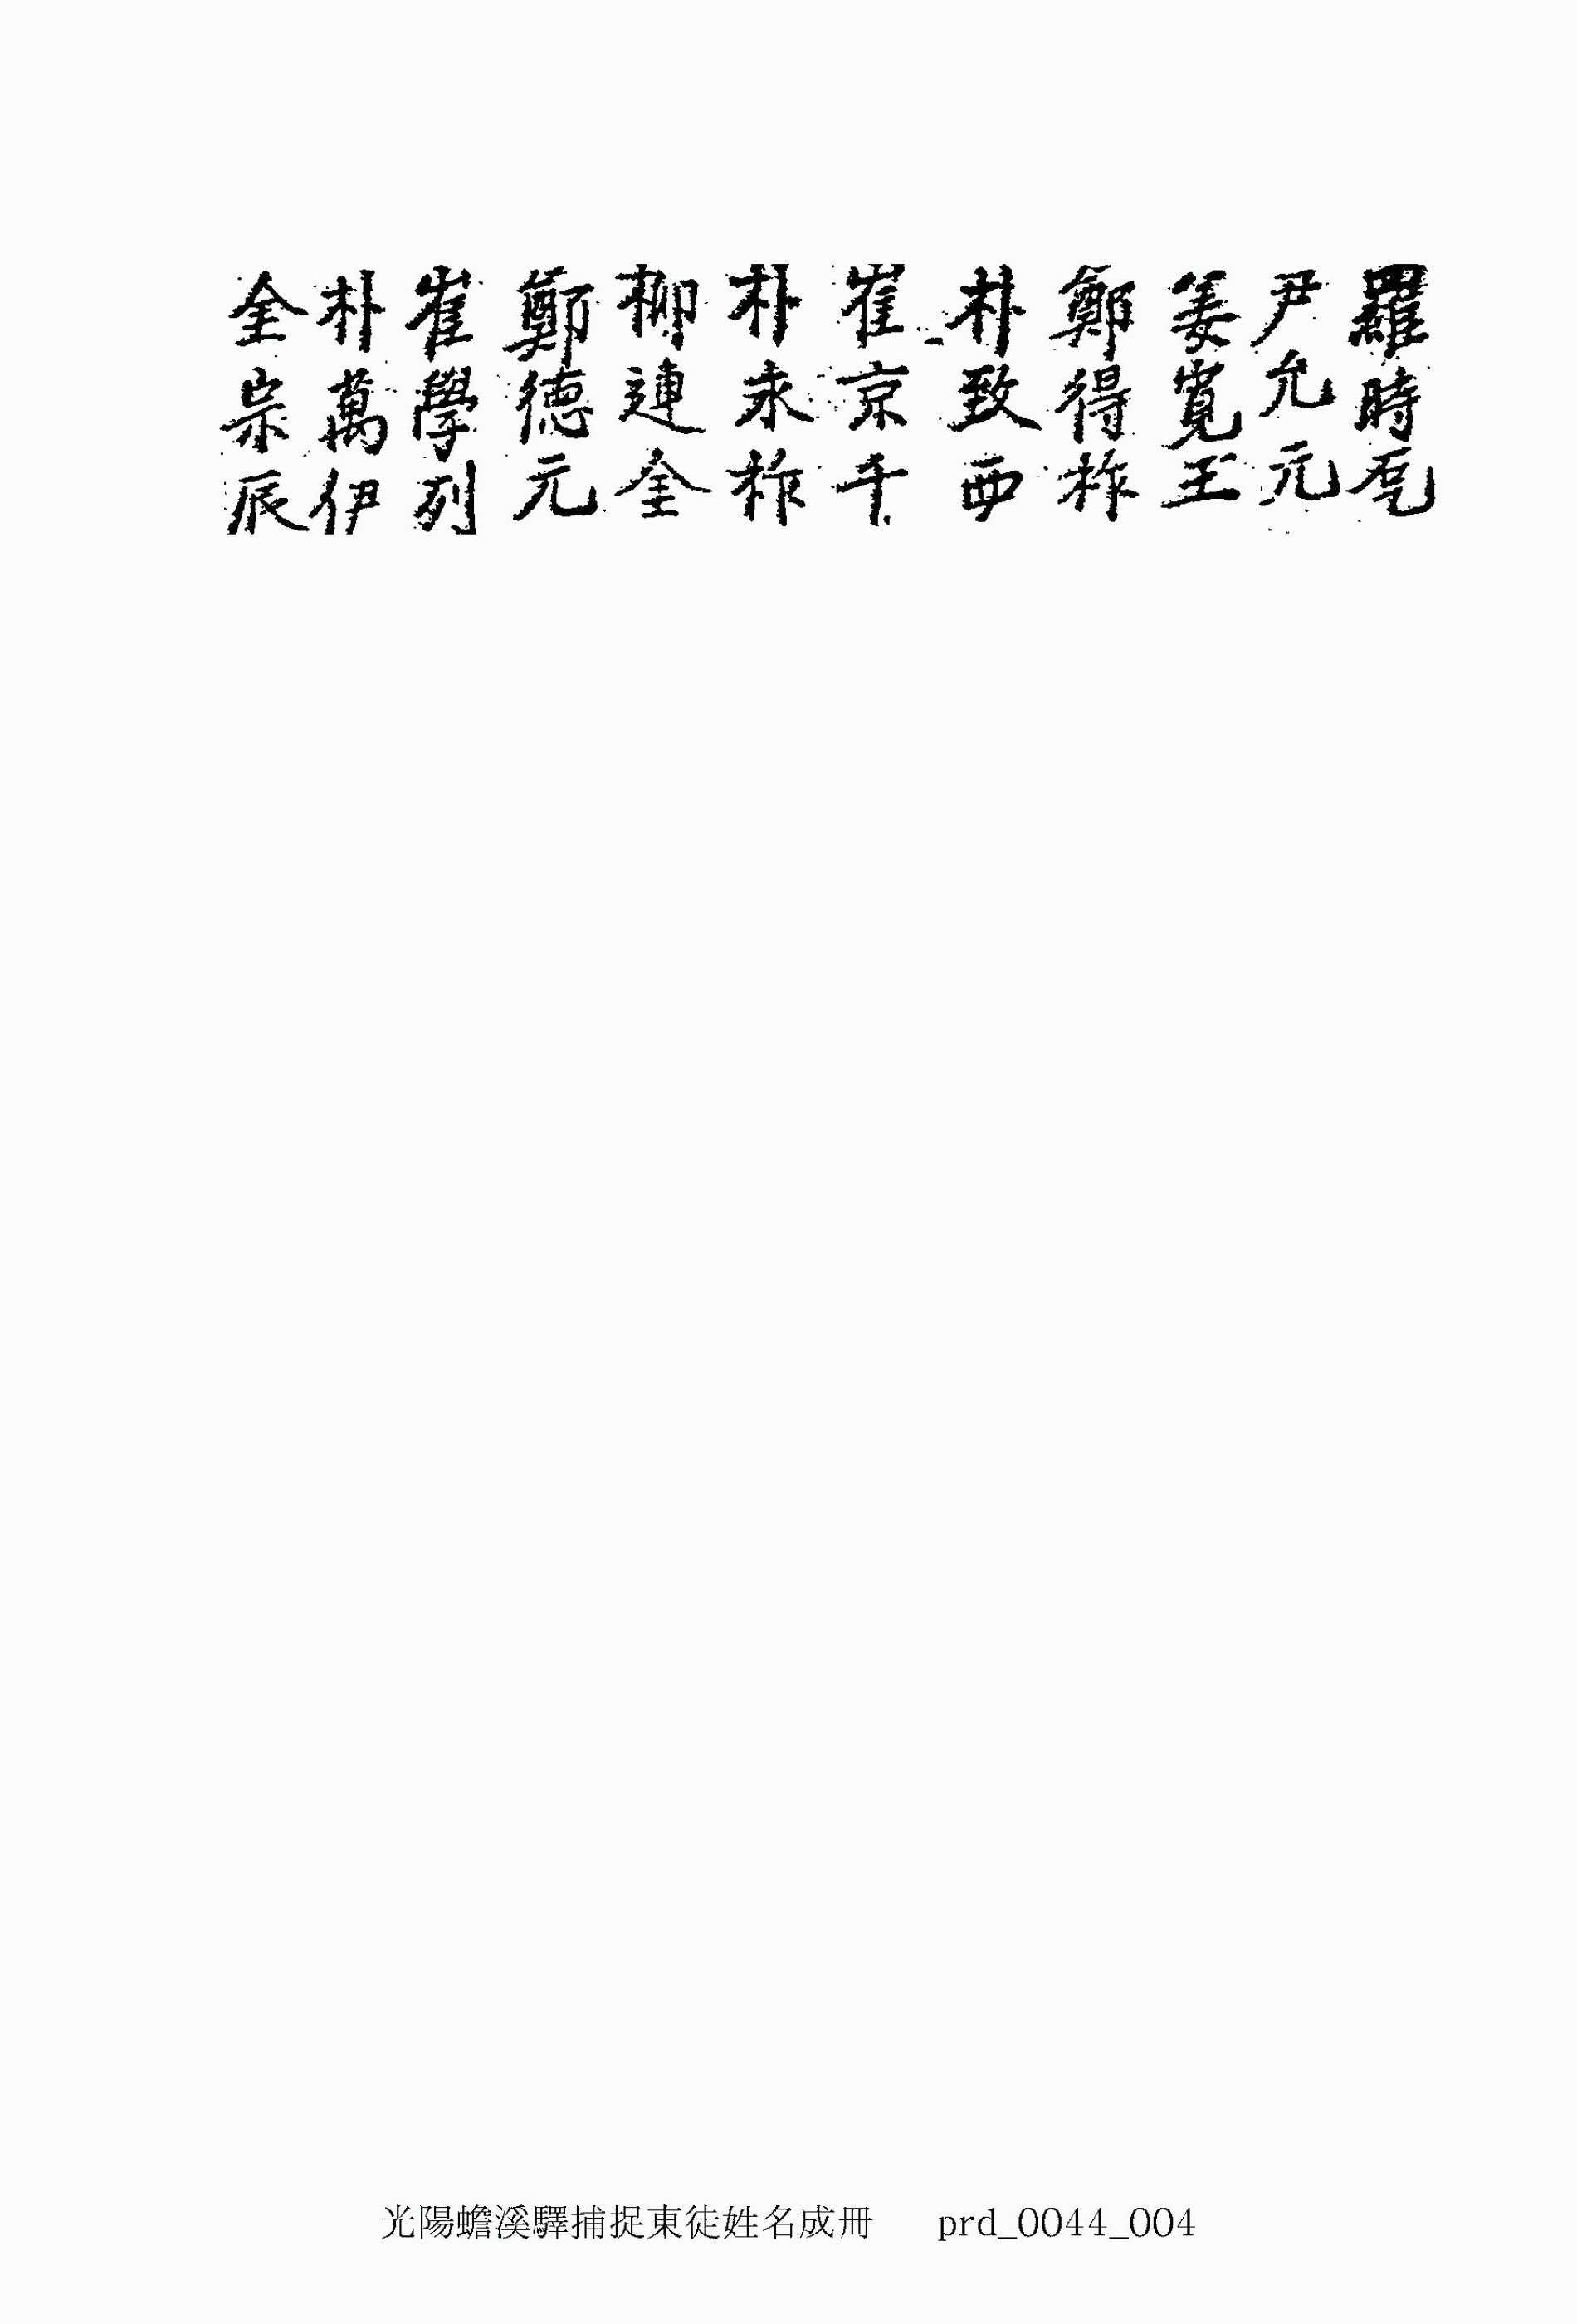 羅時㐗
尹允元
姜寬王
鄭得柞
朴致西
崔京千
朴永柞
柳連金
鄭德元
崔學列
朴萬伊
金宗辰
光陽蟾溪驛捕捉東徒姓名成冊 prd_0044_004